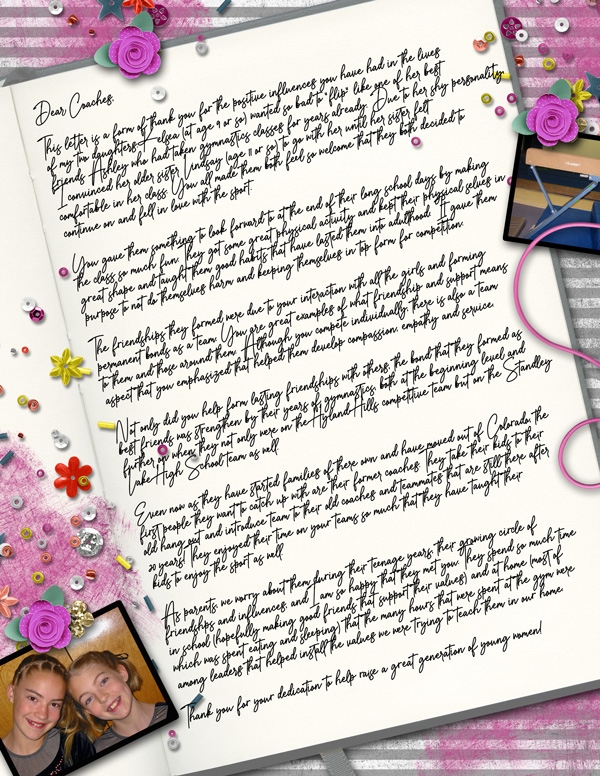 Dear Coaches,
This letter is a form of thank you for the positive influences you have had in the lives
of my two daughters. Kelsea (at age 9 or so) wanted so bad to "flip" like one of her best
friends Ashley who had taken gymnastics classes for years already. Due to her shy personality,
I convinced her older sister Lindsay (age 11 or so) to go with her until her sister felt
comfortable in her class. You all made them both feel so welcome that they both decided to
continue on and fall in love with the sport.
You gave them something to look forward to at the end of their long school days by making
the class so much fun. They got some great physical activity and kept their physical selves in
great shape and taught them good habits that have lasted them into adulthood. It gave them
purpose to not do themselves harm and keeping themselves in top form for competition.
The friendships they formed were due to your interaction with all the girls and forming
permanent bonds as a team. You are great examples of what friendship and support means
to them and those around them. Although you compete individually, there is also a team
aspect that you emphasized that helped them develop compassion, empathy and service.
Not only did you help form lasting friendships with others, the bond that they formed as
best friends was strengthen by their years of gymnastics both at the beginning level and
further on when they not only were on the Hyland Hills competitive team but on the Standley
Lake High School team as well.
Even now as they have started families of there own and have moved out of Colorado, the
first people they want to catch up with are their former coaches. They take their kids to their
old hang out and introduce team to their old coaches and teammates that are still there after
20 years! They enjoyed their time on your teams so much that they have taught their
kids to enjoy the sport as well.
As parents, we worry about them during their teenage years, their growing circle of
friendships and influences, and I am so happy that they met you. They spend so much time
in school (hopefully making good friends that support their values) and at home (most of
which was spent eating and sleeping) that the many hours that were spent at the gym were
among leaders that helped install the values we were trying to teach them in our home.
Thank you for your dedication to help raise a great generation of young women!